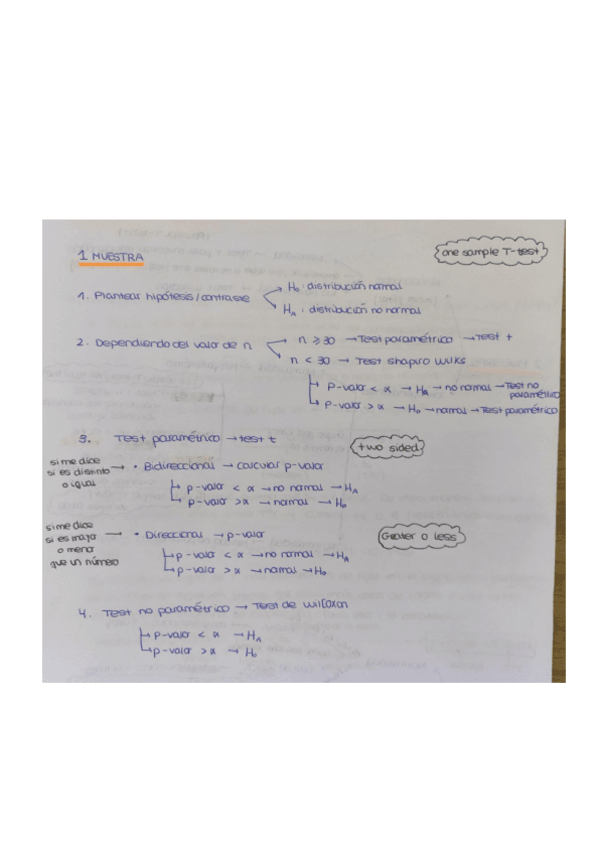 1 MUESTRA
one sample T-test
1. Plantear hipótesis/contraste
H₀ : distribución normal
Hₐ : distribución no normal
2. Dependiendo del valor de n
n ≥ 30 → Test paramétrico → test t
n < 30 → Test shapiro wilks
p-valor < α → Hₐ → no normal → Test no paramétrico
p-valor > α → H₀ → normal → Test paramétrico
3. Test paramétrico → test t
two sided
si me dice si es distinto o igual → • Bidireccional → calcular p-valor
p-valor < α → no normal → Hₐ
p-valor > α → normal → H₀
si me dice si es mayor o menor que un número → • Direccional → p-valor
Greater o less
p-valor < α → no normal → Hₐ
p-valor > α → normal → H₀
4. Test no paramétrico → Test de wilcoxon
p-valor < α → Hₐ
p-valor > α → H₀